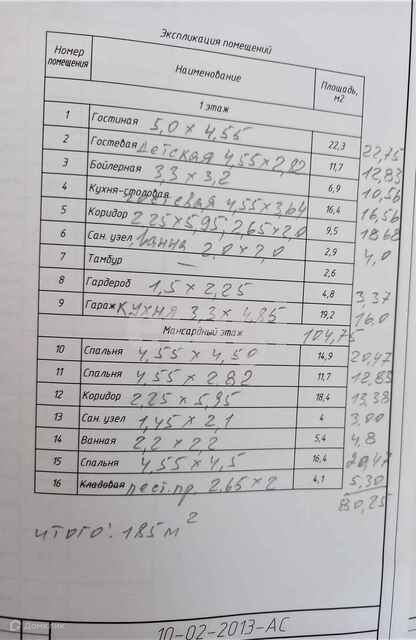 Экспликация помещений
Номер помещения Наименование Площадь, м2
1 этаж
1 Гостиная 5,0 × 4,55 22,3 22,75
2 Гостевая детская 4,55 × 2,82 11,7 12,83
3 Бойлерная 3,3 × 3,2 6,9 10,56
4 Кухня-столовая 4,55 × 3,64 16,4 16,56
5 Коридор 2.25 × 5,95; 2,65 × 2.0 9,5 18.68
6 Сан. узел, ванна 2.0 × 2,0 2,9 4,0
7 Тамбур — 2,6
8 Гардероб 1,5 × 2,25 4,8 3,37
9 Гараж КУХНЯ 3,3 × 4,85 19,2 16.0
Мансардный этаж 104,75
10 Спальня 4,55 × 4,50 14,9 20,47
11 Спальня 4,55 × 2.82 11,7 12,83
12 Коридор 2,25 × 5,95 18,4 13,38
13 Сан. узел 1,45 × 2,1 4 3,00
14 Ванная 2,2 × 2,2 5,4 4,8
15 Спальня 4,55 × 4,5 16,4 20,47
16 Кладовая лест. пр. 2.65 × 2 4,1 5,30
80,25
ИТОГО: 185 м²
10-02-2013-АС
Домклик